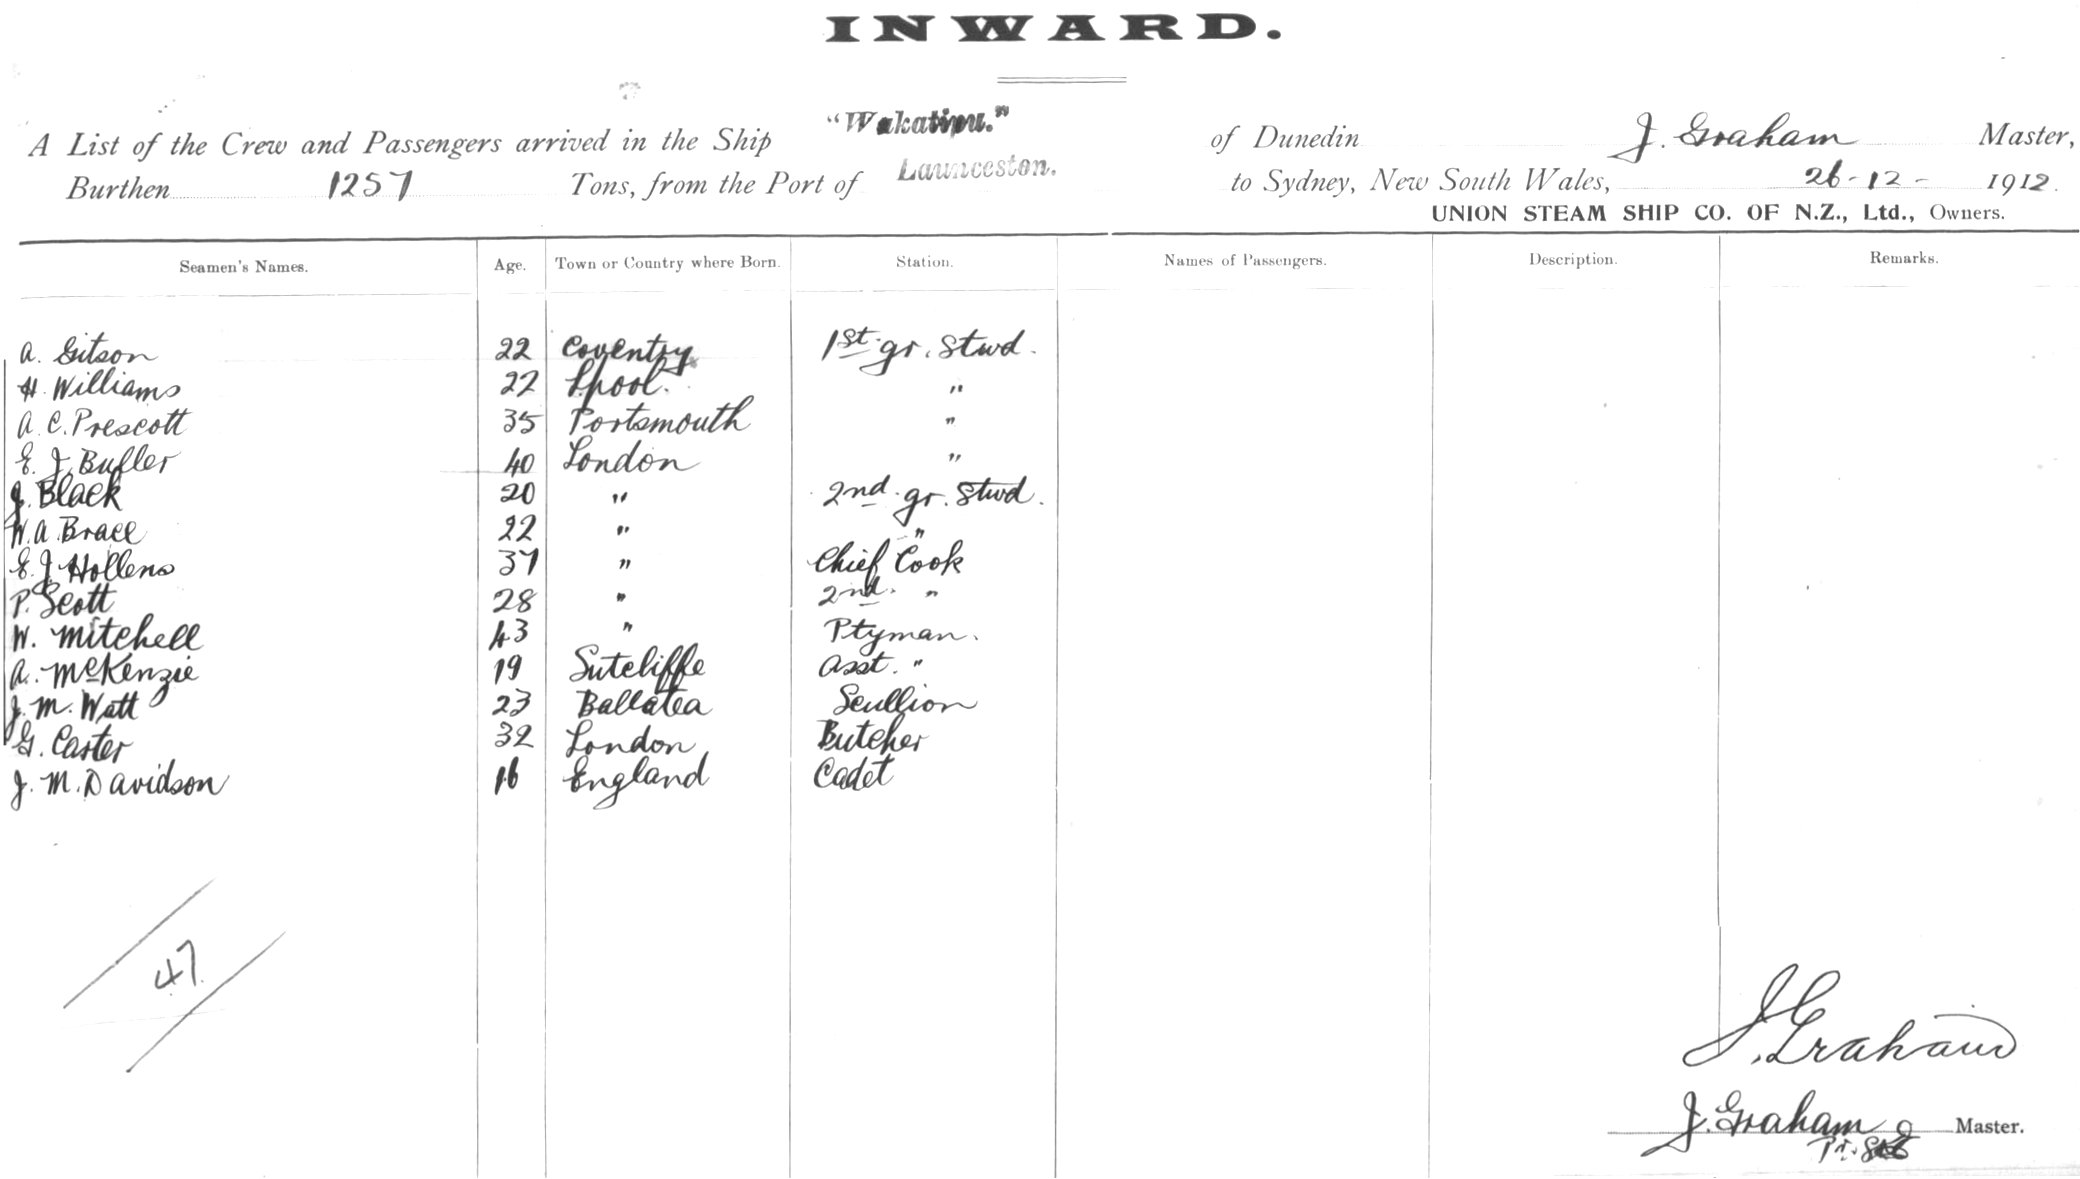 INWARD.
A List of the Crew and Passengers arrived in the Ship "Wakatipu." of Dunedin J. Graham Master,
Burthen 1257 Tons, from the Port of Launceston. to Sydney, New South Wales, 26-12- 1912.
UNION STEAM SHIP CO. OF N.Z., Ltd., Owners.
Seamen's Names. Age. Town or Country where Born. Station. Names of Passengers. Description. Remarks.
A. Gitson 22 Coventry 1st. gr. Stwd.
H. Williams 22 L'pool. "
A. C. Prescott 35 Portsmouth "
E. J. Butler 40 London "
J. Black 20 " 2nd. gr. Stwd.
W. A. Brace 22 " "
E. J. Hollens 37 " Chief Cook
P. Scott 28 " 2nd. "
W. Mitchell 43 " Ptyman.
A. McKenzie 19 Sutcliffe Asst. "
J. M. Watt 23 Ballatea Scullion
G. Carter 32 London Butcher
J. M. Davidson 16 England Cadet
47
J. Graham
J. Graham Master.